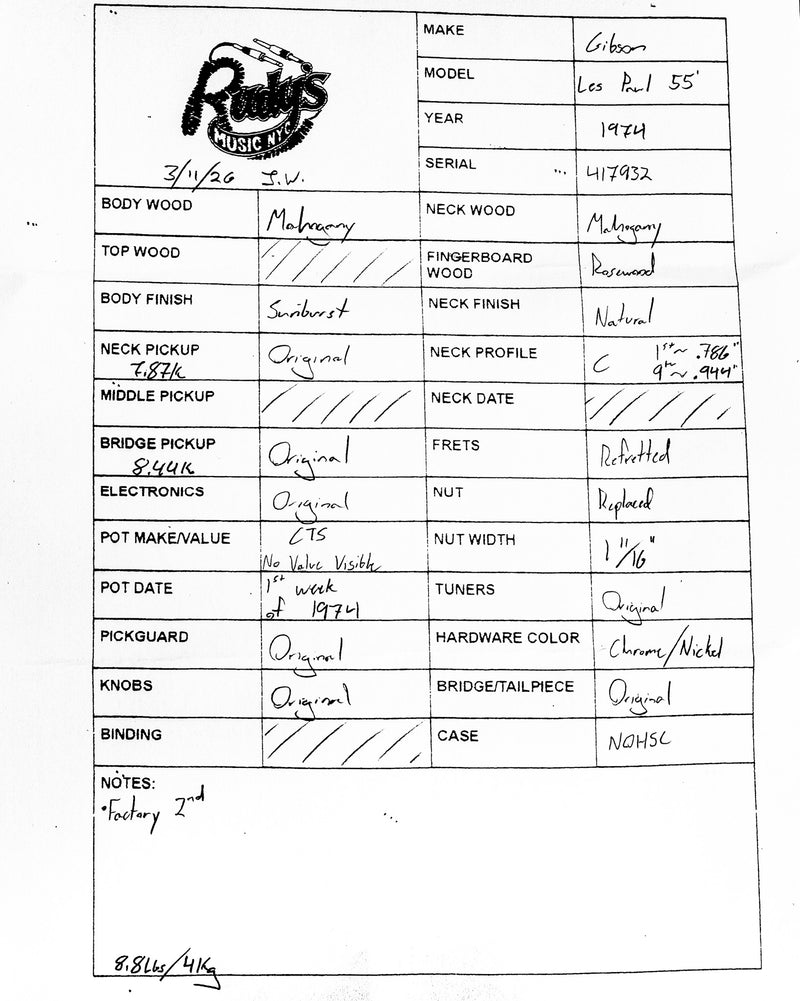 Rudy's
MUSIC NYC
3/11/26 J.W.
MAKE Gibson
MODEL Les Paul 55'
YEAR 1974
SERIAL 417932
BODY WOOD Mahogany
NECK WOOD Mahogany
TOP WOOD
FINGERBOARD
WOOD Rosewood
BODY FINISH Sunburst
NECK FINISH Natural
NECK PICKUP Original
7.87K
NECK PROFILE C 1st ~ .786"
9th ~ .944"
MIDDLE PICKUP
NECK DATE
BRIDGE PICKUP Original
8.44K
FRETS Refretted
ELECTRONICS Original
NUT Replaced
POT MAKE/VALUE CTS
No Value Visible
NUT WIDTH 1 11/16"
POT DATE 1st week
of 1974
TUNERS Original
PICKGUARD Original
HARDWARE COLOR Chrome/Nickel
KNOBS Original
BRIDGE/TAILPIECE Original
BINDING
CASE NOHSC
NOTES:
•Factory 2nd
8.8Lbs/4Kg